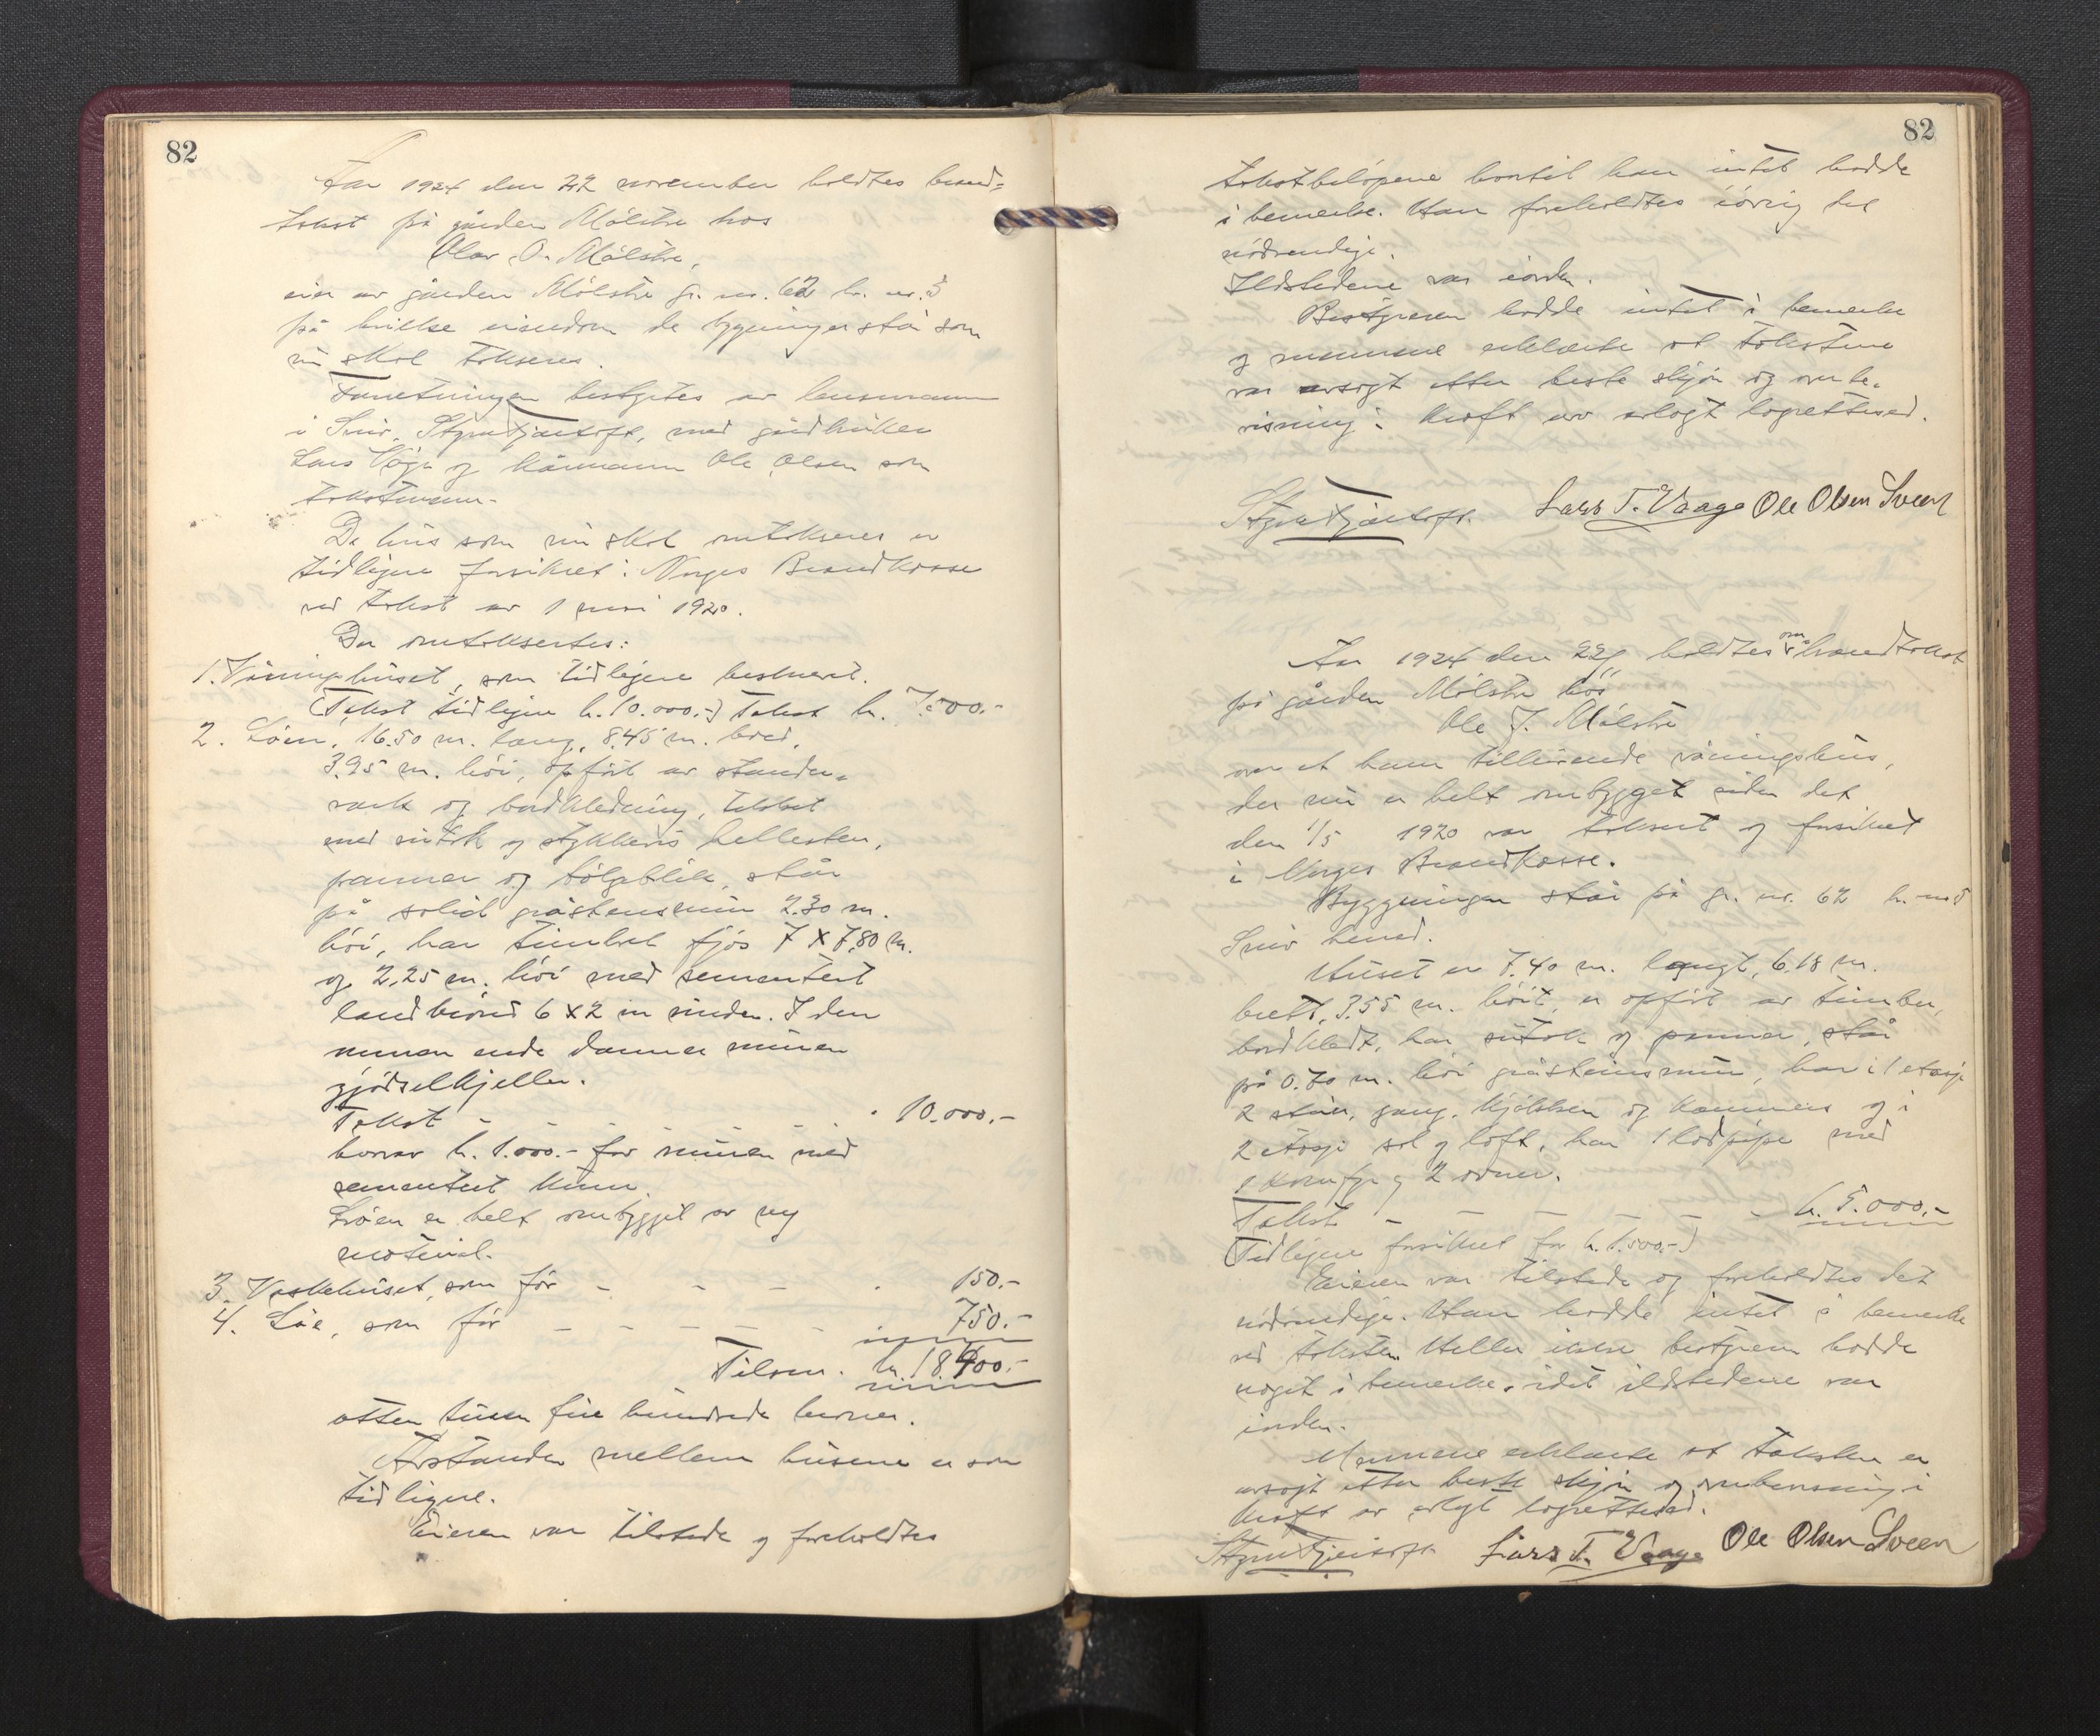 82
Aar 1924 den 22 november holdtes brand-
takst på gården Mølstre hos
Olav O. Mølstre,
eier av gården Mølstre gr. nr. 62 br. nr. 3
på hvilke eiendom de bygninger står som
nu skal takseres.
Forretningen bestyrtes av lensmann
i Sveio, Styrk Fjærtoft, med gårdbruker
Lars Våge og kårmann Ole Olsen som
takstmenn.
De hus som nu skal omtakseres er
tidligere forsikret i Norges Brandkasse
ved takst av 1 mai 1920.
Der omtaksertes:
1. Våningshuset, som tidligere beskrevet.
(Takst tidligere kr. 10.000.-) Takst kr. 7.500.-
2. Löen, 16.50 m. lang, 8.45 m. bred,
3.95 m. höi, opfört av stander-
verk og bordkledning, tekket
med sutak og stykkevis hellesten,
panner og bölgeblik, står
på solid gråstensmur 2.30 m.
höi, har timbret fjös 7 X 7,80 m.
og 2.25 m. höi med sementert
landbrönd 6 X 2 m under. I den
annen ende danner muren
gjödselkjeller.
Takst - - - - - - 10.000.-
hvorav kr. 1.000.- for muren med
sementert kum.
Löen er helt ombygget av ny
material.
3. Vaskehuset, som för - - - . 150.-
4. Löe, som för - - - - - . 750.-
Tilsm. kr. 18400.-
atten tusen fire hundrede kroner.
Avstanden mellem husene er som
tidligere.
Eieren var tilstede og foreholdtes
82
takstbelöpene hvortil han intet hadde
å bemerke. Han foreholdtes iövrig det
nödvendige.
Ildstedene var iorden.
Bestyreren hadde intet å bemerke
og mennene erklærte at takstene
var avsagt etter beste skjön og overbe-
visning i kraft av avlagt lagrettesed.
Styrk Fjærtoft Lars T. Vaage Ole Olsen Sveen
Aar 1924 den 22/ holdtes om brandtakst
på gården Mølstre hos
Ole J. Mølstre
over et ham tilhörende våningshus,
der nu er helt ombygget siden det
den 1/5 1920 var taksert og forsikret
i Norges Brandkasse.
Bygningen står på gr. nr. 62 br. nr. 5
Sveio herred.
Huset er 7.40 m. langt, 6.18 m.
bredt, 3.55 m. höit, er opfört av timber,
bordkledt, har sutak og panner, står
på 0.70 m. höi gråstensmur, har i 1 etasje
2 stuer, gang, kjökken og kammers og i
2 etasje sal og loft, har 1 lodpipe med
1 komfyr og 2 ovner.
Takst - - - - - - - kr. 5.000.-
(Tidligere forsikret for kr. 1.500.-)
Eieren var tilstede og foreholdtes det
nödvendige. Han hadde intet å bemerke
ved taksten. Heller ikke bestyreren hadde
noget å bemerke, idet ildstedene var
iorden.
Mennene erklærte at taksten er
avsagt etter beste skjön og overbevisning i
kraft av avlagt lagrettesed.
Styrk Fjærtoft Lars T. Vaage Ole Olsen Sveen